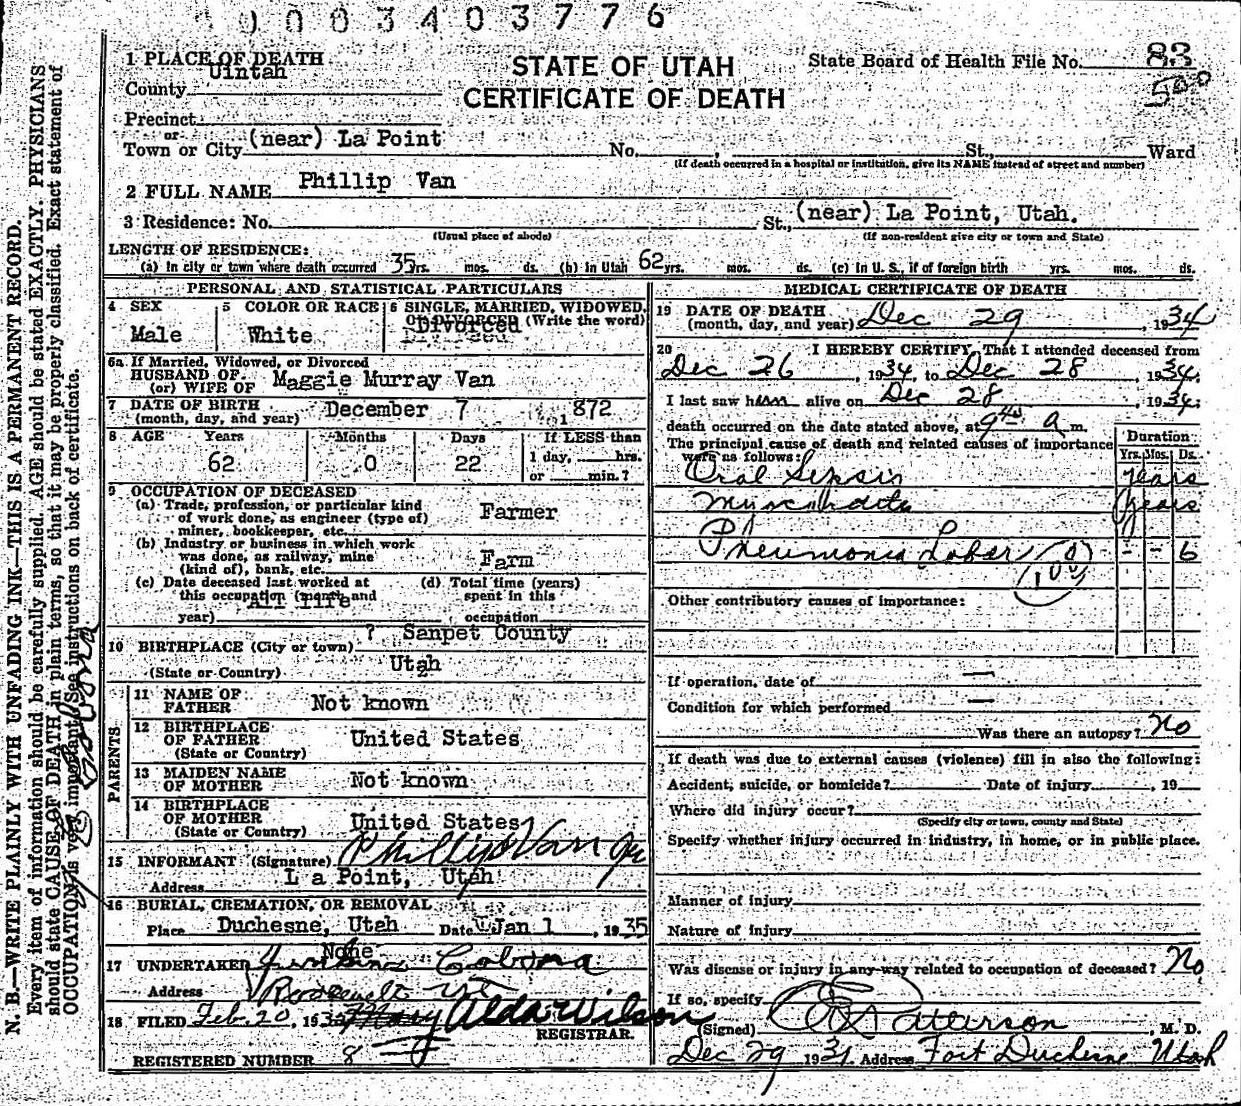 0003403776
1 PLACE OF DEATH
Uintah
County
STATE OF UTAH
CERTIFICATE OF DEATH
State Board of Health File No. 83
500
Precinct
or
Town or City (near) La Point No. , St., Ward
(If death occurred in a hospital or institution, give its NAME instead of street and number)
2 FULL NAME Phillip Van
3 Residence: No. St., (near) La Point, Utah.
(Usual place of abode) (If non-resident give city or town and State)
LENGTH OF RESIDENCE:
(a) In city or town where death occurred 35 yrs. mos. ds. (b) In Utah 62 yrs. mos. ds. (c) In U. S., if of foreign birth yrs. mos. ds.
PERSONAL AND STATISTICAL PARTICULARS
4 SEX 5 COLOR OR RACE 6 SINGLE, MARRIED, WIDOWED,
OR DIVORCED (Write the word)
Male White Divorced
6a If Married, Widowed, or Divorced
HUSBAND OF
(or) WIFE OF Maggie Murray Van
7 DATE OF BIRTH
(month, day, and year) December 7 1872
8 AGE Years Months Days If LESS than
1 day, hrs.
or min.?
62 0 22
9 OCCUPATION OF DECEASED
(a) Trade, profession, or particular kind
of work done, as engineer (type of)
miner, bookkeeper, etc. Farmer
(b) Industry or business in which work
was done, as railway, mine
(kind of), bank, etc. Farm
(c) Date deceased last worked at
this occupation (month and
year) All life
(d) Total time (years)
spent in this
occupation
10 BIRTHPLACE (City or town) ? Sanpet County
(State or Country) Utah
PARENTS
11 NAME OF
FATHER Not known
12 BIRTHPLACE
OF FATHER
(State or Country) United States
13 MAIDEN NAME
OF MOTHER Not known
14 BIRTHPLACE
OF MOTHER
(State or Country) United States
15 INFORMANT (Signature) Phillip Van Jr
Address La Point, Utah
16 BURIAL, CREMATION, OR REMOVAL
Place Duchesne, Utah Date Jan 1, 1935
17 UNDERTAKER None
Address Roosevelt Ut
18 FILED Feb. 20, 193 Mary Alda Wilson
REGISTRAR.
REGISTERED NUMBER 8
MEDICAL CERTIFICATE OF DEATH
19 DATE OF DEATH
(month, day, and year) Dec 29, 1934
20 I HEREBY CERTIFY, That I attended deceased from
Dec 26, 1934, to Dec 28, 1934.
I last saw him alive on Dec 28, 1934;
death occurred on the date stated above, at 9 40 a m.
The principal cause of death and related causes of importance
were as follows:
Duration
Yrs. Mos. Ds.
Oral Sepsis years
Myocarditis years
Pneumonia Lobar - - 6
Other contributory causes of importance:
If operation, date of —
Condition for which performed —
Was there an autopsy? No
If death was due to external causes (violence) fill in also the following:
Accident, suicide, or homicide? Date of injury , 19
Where did injury occur?
(Specify city or town, county and State)
Specify whether injury occurred in industry, in home, or in public place.
Manner of injury
Nature of injury
Was disease or injury in any way related to occupation of deceased? No
If so, specify
(Signed) Patterson, M. D.
Dec 29 1934 Address Fort Duchesne Utah
N. B.—WRITE PLAINLY WITH UNFADING INK—THIS IS A PERMANENT RECORD.
Every item of information should be carefully supplied. AGE should be stated EXACTLY. PHYSICIANS
should state CAUSE OF DEATH in plain terms, so that it may be properly classified. Exact statement of
OCCUPATION is very important. See instructions on back of certificate.